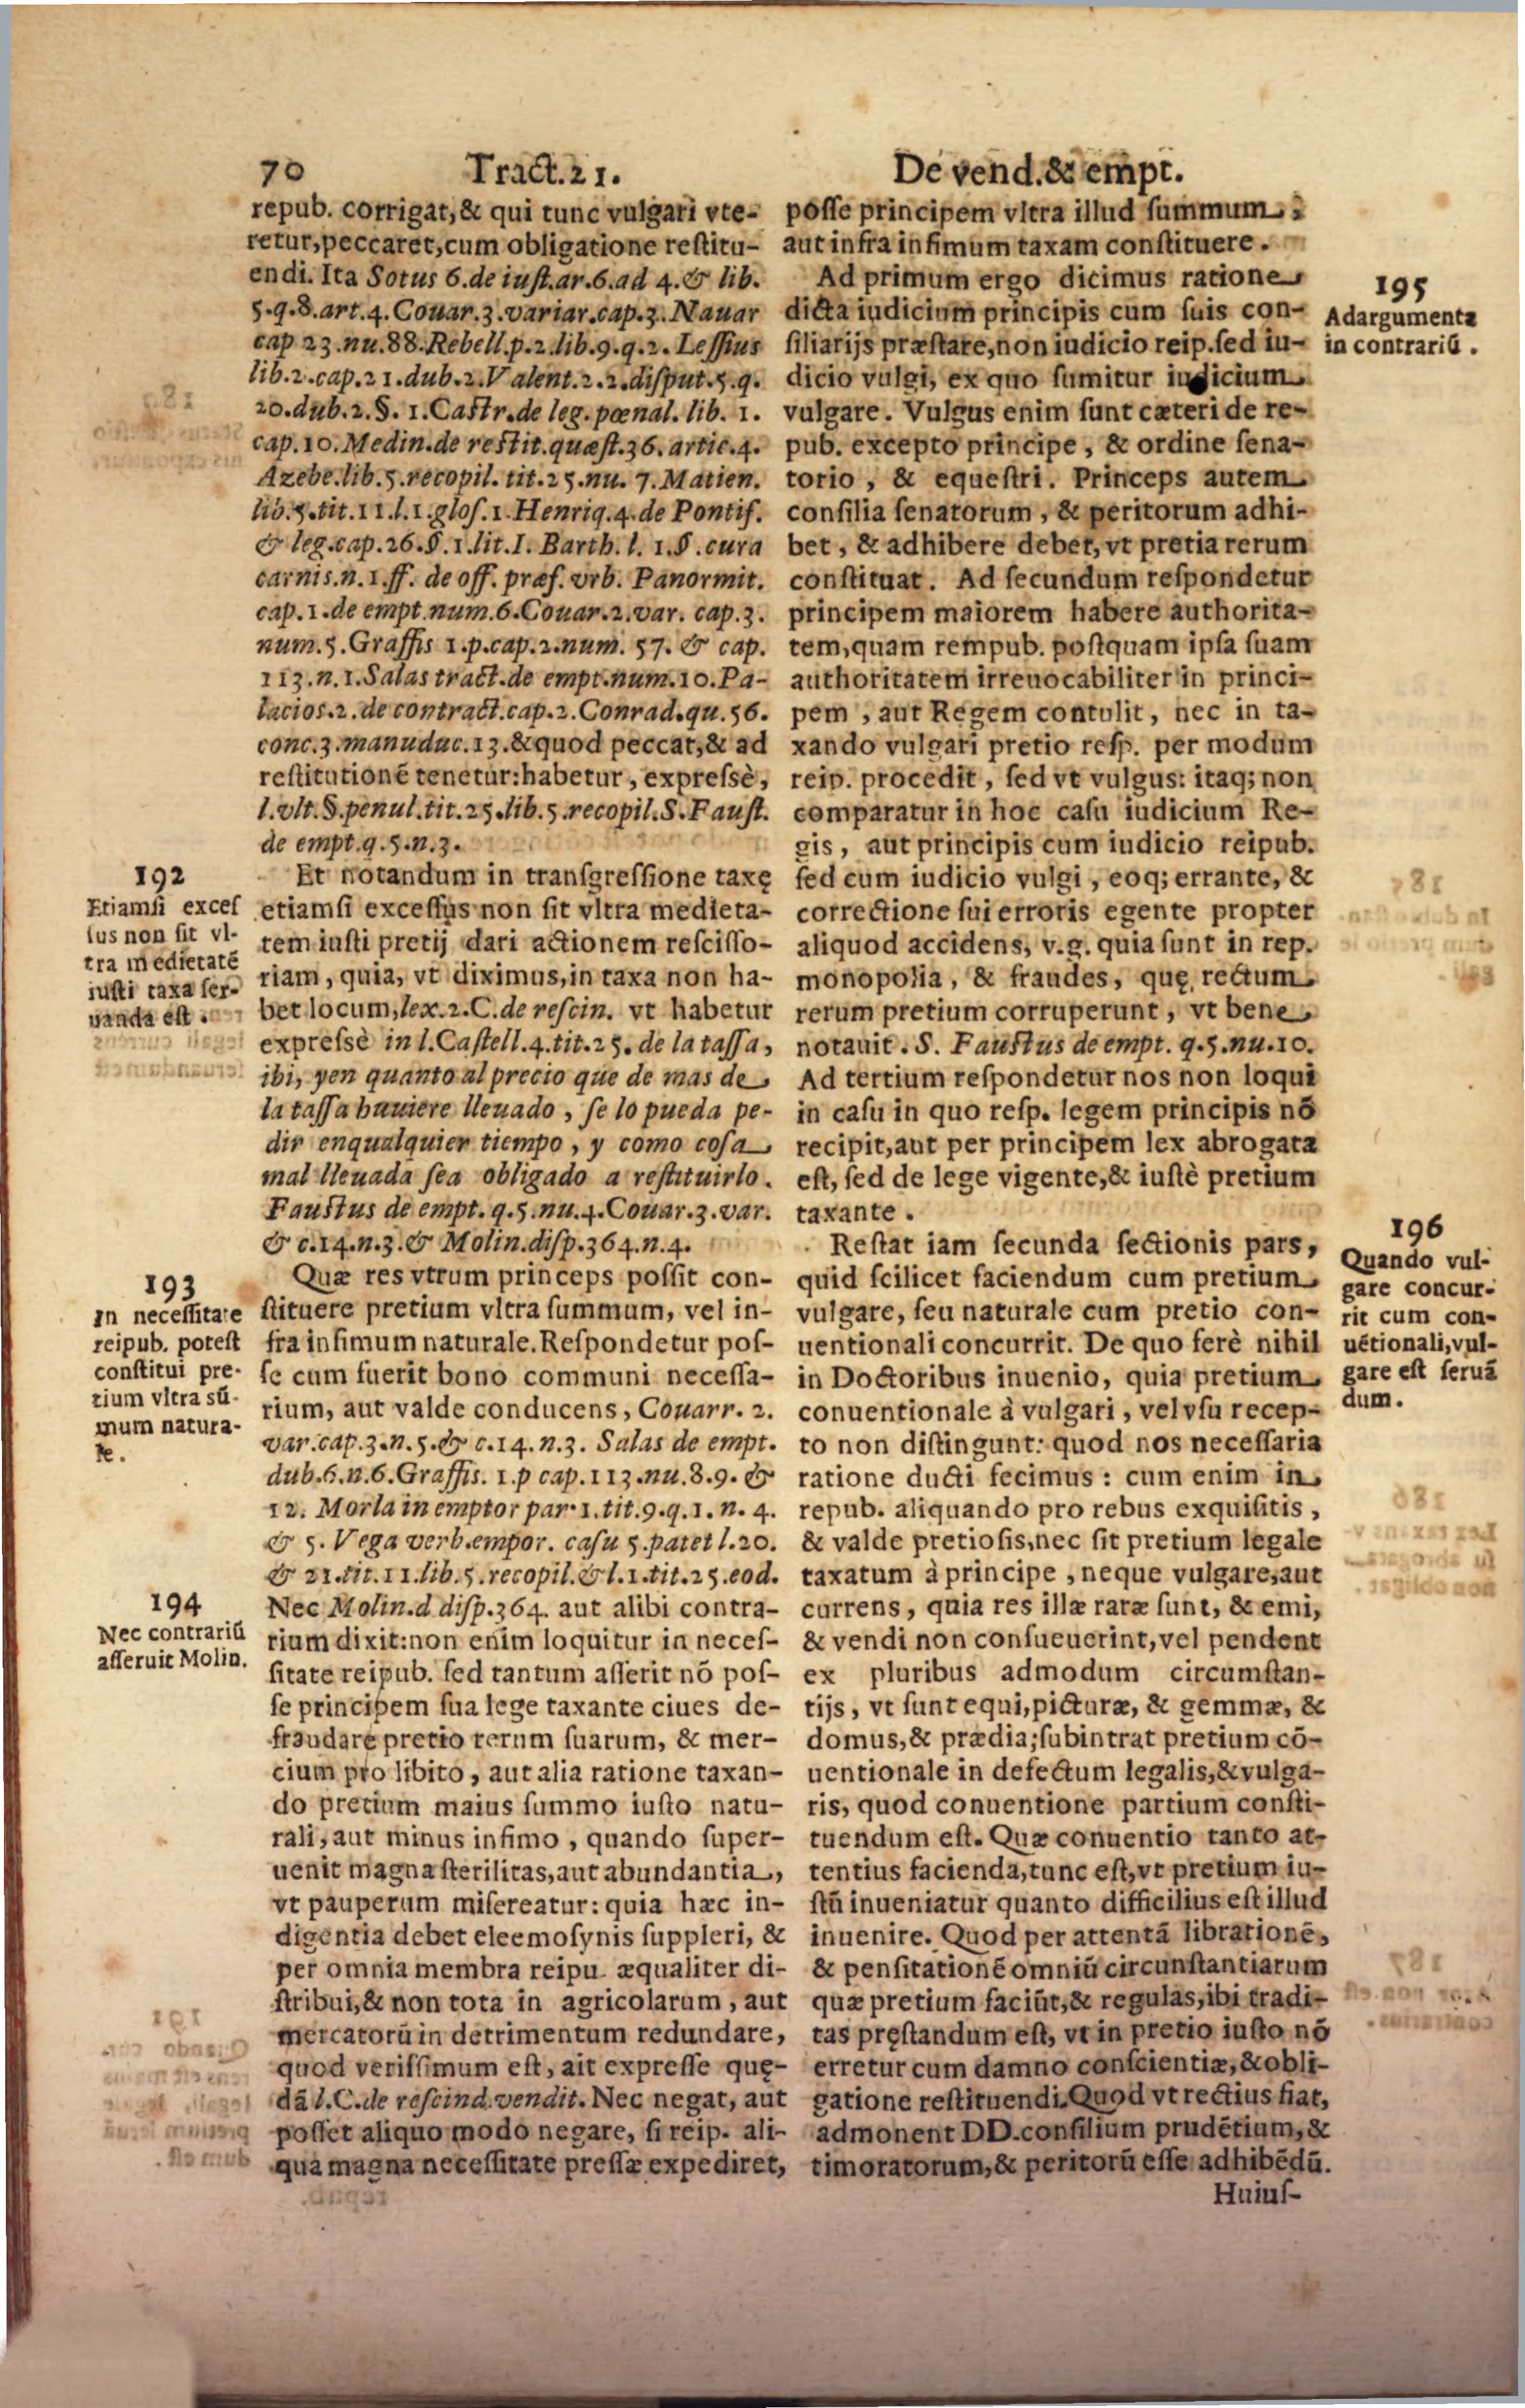 70 Tract.21. De vend.& empt.
repub. corrigat,& qui tunc vulgari vte-
retur,peccaret,cum obligatione restitu-
endi. Ita Sotus 6.de iust.ar.6.ad 4.& lib.
5.q.8.art.4.Couar.3.variar.cap.3.Nauar
cap 23.nu.88.Rebell.p.2.lib.9.q.2. Lessius
lib.2.cap.21.dub.2.Valent.2.2.disput.5.q.
20.dub.2.§. 1.Castr.de leg.pœnal. lib. 1.
cap.10.Medin.de restit.quæst.36.artic.4.
Azebe.lib.5.recopil. tit.25.nu. 7.Matien.
lib.5.tit.11.l.1.glos.1.Henriq.4.de Pontif.
& leg.cap.26.§.1.lit.I. Barth. l. 1.§.cura
carnis.n.1.ff. de off. præf. vrb. Panormit.
cap.1.de empt.num.6.Couar.2.var. cap.3.
num.5.Graffis 1.p.cap.2.num. 57. & cap.
113.n.1.Salas tract.de empt.num.10.Pa-
lacios.2.de contract.cap.2.Conrad.qu.56.
conc.3.manuduc.13.&quod peccat,& ad
restitutionē tenetur:habetur, expressè,
l.vlt.§.penul.tit.25.lib.5.recopil.S.Faust.
de empt.q.5.n.3.
192
Etiamsi exces
sus non sit vl-
tra medietatē
iusti taxa ser-
uanda est.
Et notandum in transgressione taxę
etiamsi excessus non sit vltra medieta-
tem iusti pretij dari actionem rescisso-
riam, quia, vt diximus,in taxa non ha-
bet locum,lex.2.C.de rescin. vt habetur
expressè in l.Castell.4.tit.25. de la tassa,
ibi, yen quanto al precio que de mas de
la tassa huuiere lleuado, se lo pueda pe-
dir enqualquier tiempo, y como cosa
mal lleuada sea obligado a restituirlo.
Faustus de empt. q.5.nu.4.Couar.3.var.
& c.14.n.3.& Molin.disp.364.n.4.
193
In necessitate
reipub. potest
constitui pre-
tium vltra sū-
mum natura-
le.
Quæ res vtrum princeps possit con-
stituere pretium vltra summum, vel in-
fra infimum naturale. Respondetur pos-
se cum fuerit bono communi necessa-
rium, aut valde conducens, Couarr. 2.
var.cap.3.n.5.& c.14.n.3. Salas de empt.
dub.6.n.6.Graffis. 1.p cap.113.nu.8.9. &
12. Morla in emptor par.1.tit.9.q.1. n. 4.
& 5. Vega verb.empor. casu 5.patet l.20.
& 21.tit.11.lib.5.recopil.& l.1.tit.25.eod.
194
Nec contrariū
asseruit Molin.
Nec Molin.d disp.364. aut alibi contra-
rium dixit:non enim loquitur in neces-
sitate reipub. sed tantum asserit nō pos-
se principem sua lege taxante ciues de-
fraudare pretio rerum suarum, & mer-
cium pro libito, aut alia ratione taxan-
do pretium maius summo iusto natu-
rali, aut minus infimo, quando super-
uenit magna sterilitas,aut abundantia,
vt pauperum misereatur: quia hæc in-
digentia debet eleemosynis suppleri, &
per omnia membra reipu. æqualiter di-
stribui,& non tota in agricolarum, aut
mercatorū in detrimentum redundare,
quod verissimum est, ait expresse quę-
dā l.C.de rescind.vendit. Nec negat, aut
posset aliquo modo negare, si reip. ali-
qua magna necessitate pressæ expediret,
posse principem vltra illud summum,
aut infra infimum taxam constituere.
195
Ad argumenta
in contrariū.
Ad primum ergo dicimus ratione
dicta iudicium principis cum suis con-
siliarijs præstare,non iudicio reip.sed iu-
dicio vulgi, ex quo sumitur iudicium
vulgare. Vulgus enim sunt cæteri de re-
pub. excepto principe, & ordine sena-
torio, & equestri. Princeps autem
consilia senatorum, & peritorum adhi-
bet, & adhibere debet, vt pretia rerum
constituat. Ad secundum respondetur
principem maiorem habere authorita-
tem,quam rempub. postquam ipsa suam
authoritatem irreuocabiliter in princi-
pem, aut Regem contulit, nec in ta-
xando vulgari pretio resp. per modum
reip. procedit, sed vt vulgus: itaq; non
comparatur in hoc casu iudicium Re-
gis, aut principis cum iudicio reipub.
sed cum iudicio vulgi, eoq; errante, &
correctione sui erroris egente propter
aliquod accidens, v.g. quia sunt in rep.
monopolia, & fraudes, quę rectum
rerum pretium corruperunt, vt bene
notauit. S. Faustus de empt. q.5.nu.10.
Ad tertium respondetur nos non loqui
in casu in quo resp. legem principis nō
recipit,aut per principem lex abrogata
est, sed de lege vigente,& iustè pretium
taxante.
196
Quando vul-
gare concur-
rit cum con-
uētionali,vul-
gare est seruā
dum.
Restat iam secunda sectionis pars,
quid scilicet faciendum cum pretium
vulgare, seu naturale cum pretio con-
uentionali concurrit. De quo ferè nihil
in Doctoribus inuenio, quia pretium
conuentionale à vulgari, vel vsu recep-
to non distingunt: quod nos necessaria
ratione ducti fecimus: cum enim in
repub. aliquando pro rebus exquisitis,
& valde pretiosis,nec sit pretium legale
taxatum à principe, neque vulgare,aut
currens, quia res illæ raræ sunt, & emi,
& vendi non consueuerint,vel pendent
ex pluribus admodum circumstan-
tijs, vt sunt equi,picturæ, & gemmæ, &
domus,& prædia;subintrat pretium cō-
uentionale in defectum legalis,&vulga-
ris, quod conuentione partium consti-
tuendum est. Quæ conuentio tanto at-
tentius facienda,tunc est,vt pretium iu-
stū inueniatur quanto difficilius est illud
inuenire. Quod per attentā librationē,
& pensitationē omniū circunstantiarum
quæ pretium faciūt,& regulas,ibi tradi-
tas pręstandum est, vt in pretio iusto nō
erretur cum damno conscientiæ,&obli-
gatione restituendi.Quod vt rectius fiat,
admonent DD.consilium prudētium,&
timoratorum,& peritorū esse adhibēdū.
Huius-